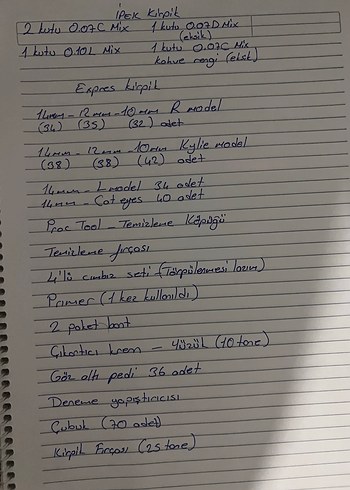 İPEK Kirpik
2 kutu 0.07C Mix 1 kutu 0.07D Mix
(eksik)
1 kutu 0.10L Mix 1 kutu 0.07C Mix
kahve rengi (eksik)
Expres kirpik
14mm - 12mm - 10mm R model
(34) (35) (32) adet
14mm - 12mm - 10mm Kylie model
(38) (38) (42) adet
14mm - L model 34 adet
14mm - Cat eyes 40 adet
Proc Tool - Temizleme Köpüğü
Temizleme fırçası
4'lü cımbız seti (Törpülenmesi lazım)
Primer (1 kez kullanıldı)
2 paket bant
Çıkartıcı krem - Yüzük (10 tane)
Göz altı pedi 36 adet
Deneme yapıştırıcısı
Çubuk (70 adet)
Kirpik Fırçası (25 tane)